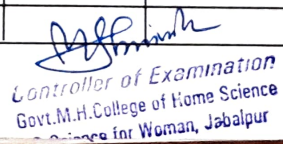 Controller of Examination
Govt.M.H.College of Home Science
Science for Woman, Jabalpur